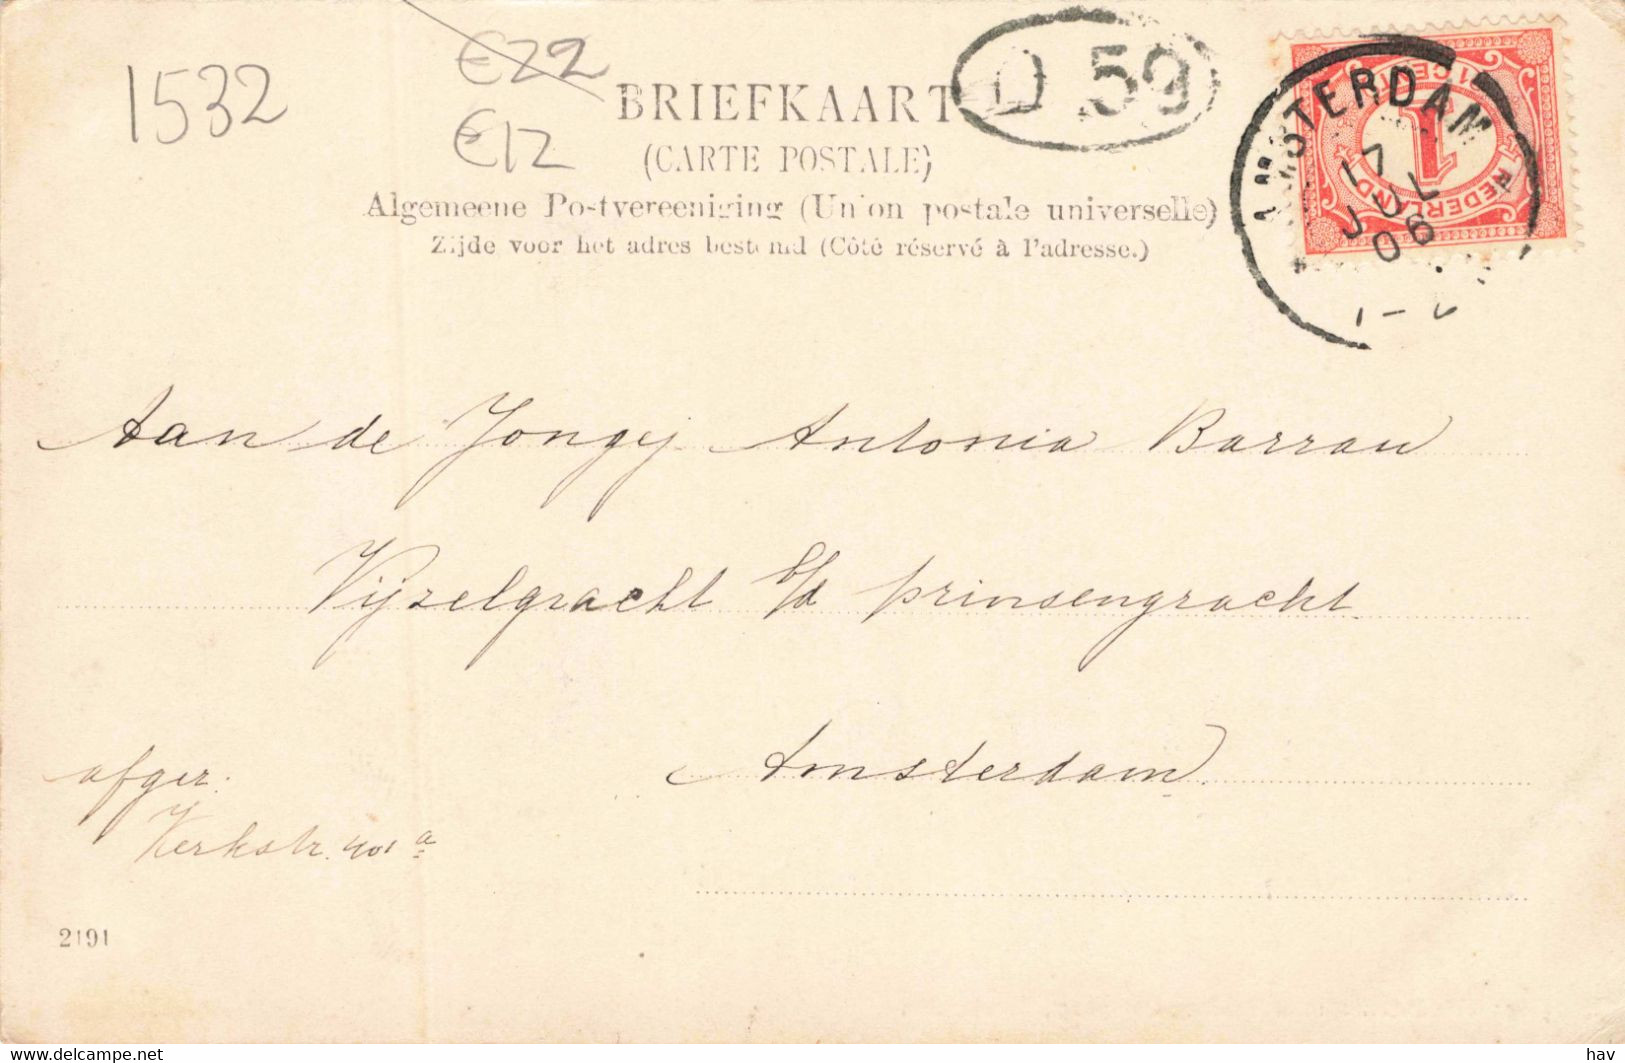 1532
€22
€12
BRIEFKAART
(CARTE POSTALE)
Algemeene Postvereeniging (Union postale universelle)
Zijde voor het adres bestemd (Côté réservé à l'adresse.)
D 59
AMSTERDAM
17 JUL 06
1 CENT
1
NEDERLAND
Aan de Jongej. Antonia Barrau
Vijzelgracht b/d prinsengracht
Amsterdam
afger.
Kerkstr. 401 a
2191
www.delcampe.net
hav